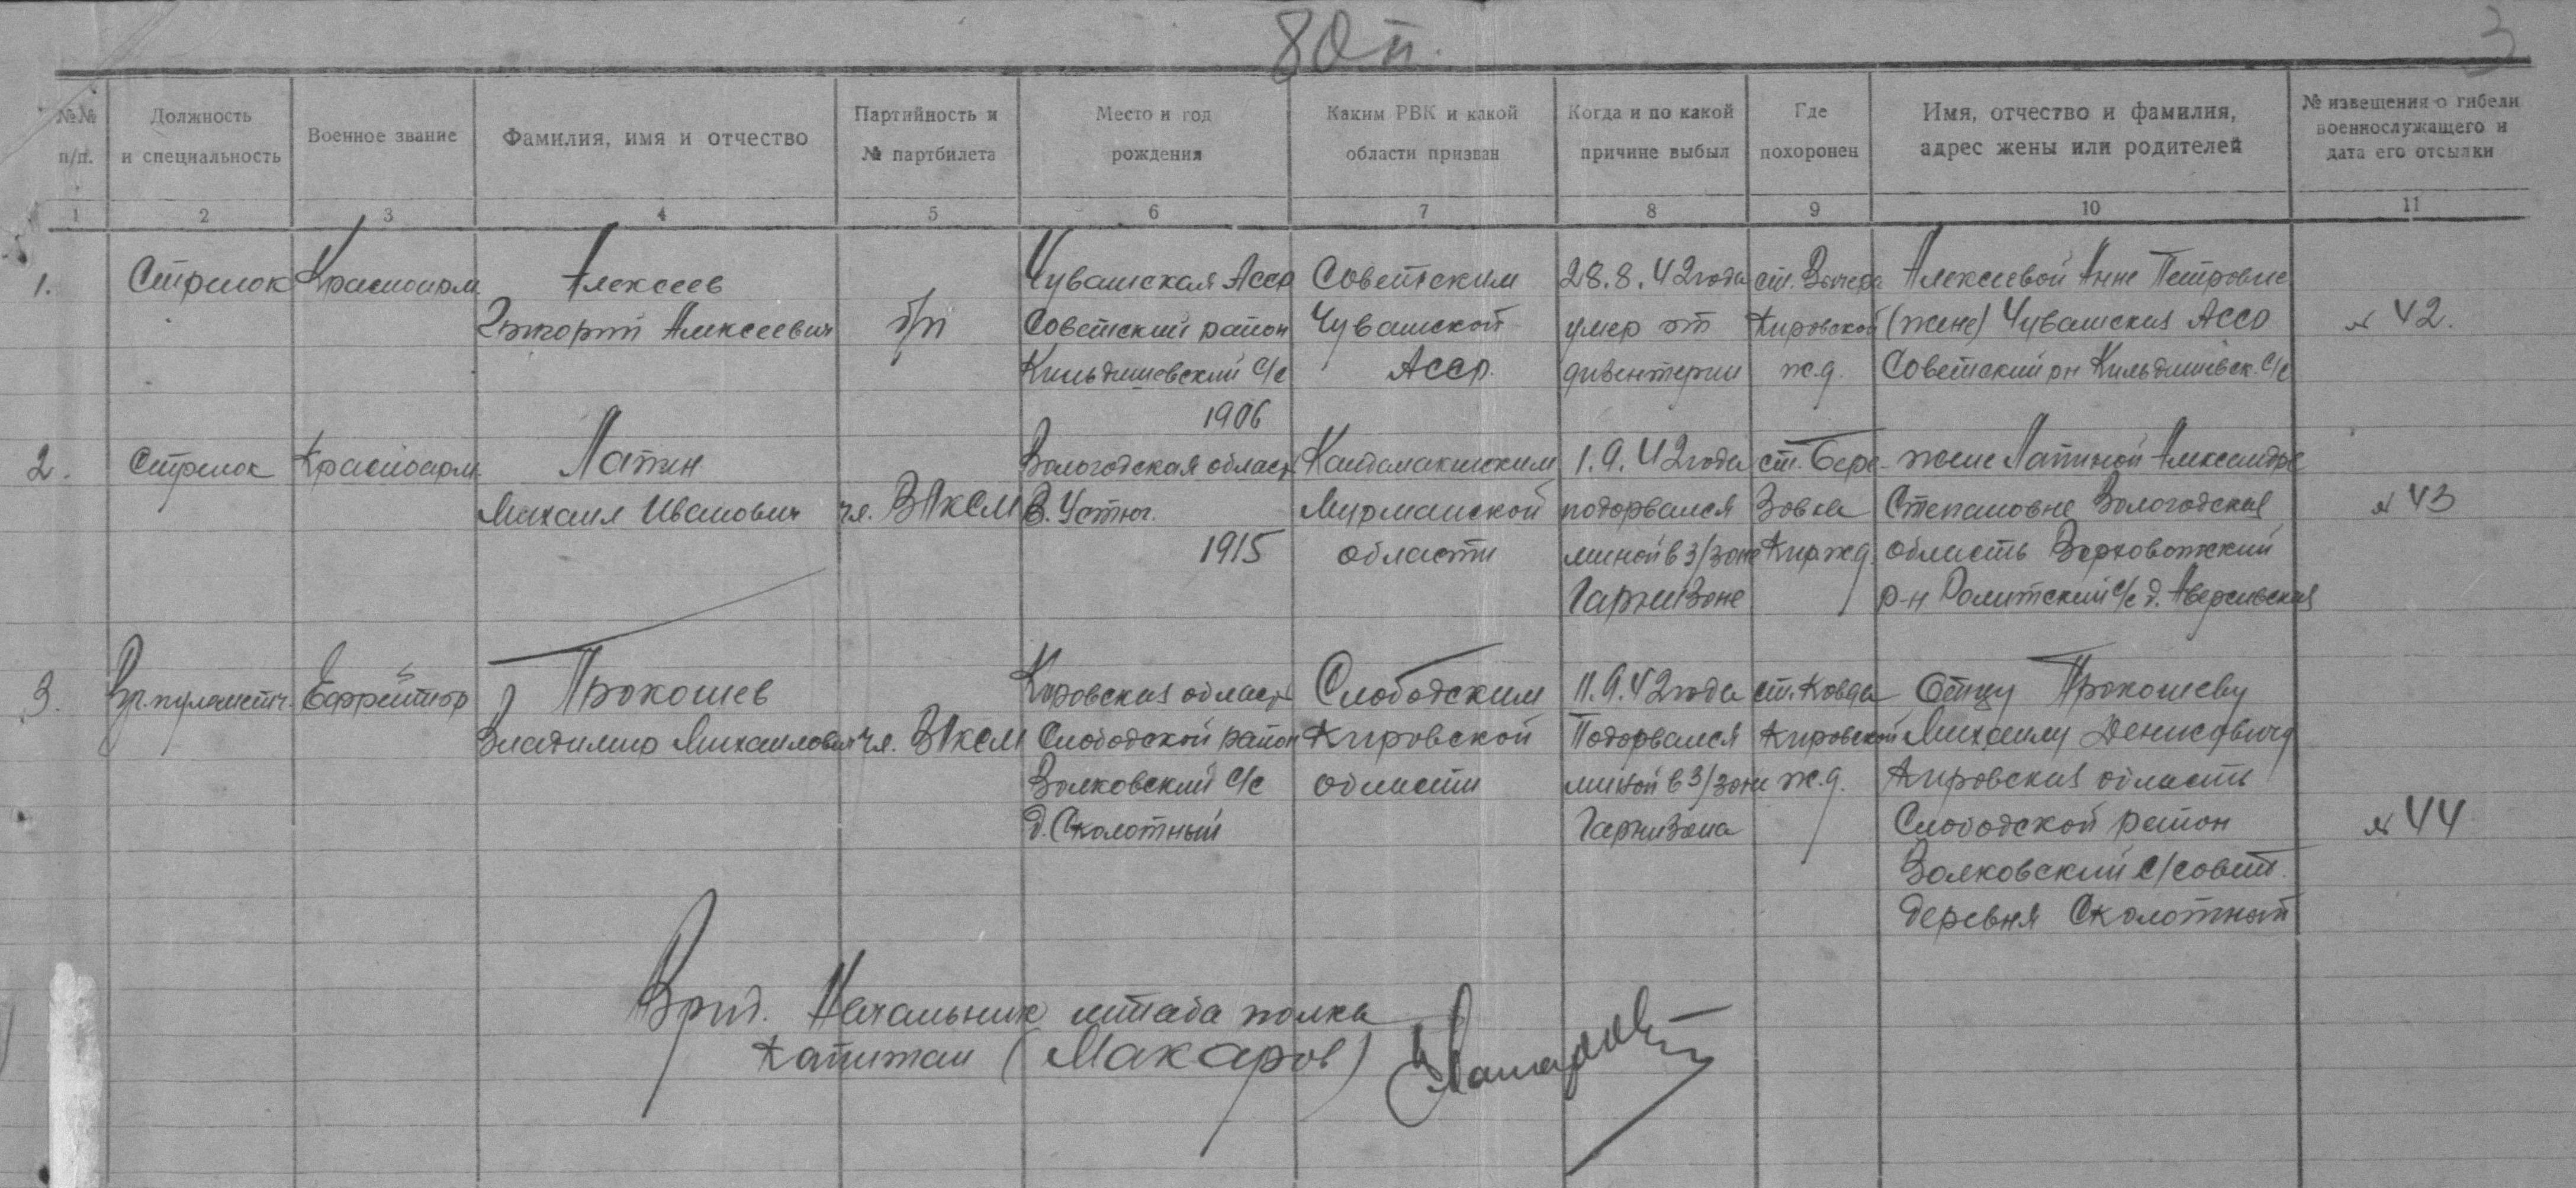 80 п.
3
№№ п/п.
Должность и специальность
Военное звание
Фамилия, имя и отчество
Партийность и № партбилета
Место и год рождения
Каким РВК и какой области призван
Когда и по какой причине выбыл
Где похоронен
Имя, отчество и фамилия, адрес жены или родителей
№ извещения о гибели военнослужащего и дата его отсылки
1 2 3 4 5 6 7 8 9 10 11
1. Стрелок Красноарм Алексеев Чувашская Асср Советским 28.8.42 года ст. Алексеевой Анне Петровне
Алексеевич б/п Советский район Чувашской умер от Кировской (жене) Чувашская АССР № 42.
Кильдишевский с/с Асср. дизентерии ж.д. Советский рн Кильдишевск. с/с
1906
2. Стрелок Красноарм. Лапин Вологодская област Кандалакшским 1.9.42 года ст. Бере- жене Лапиной Александре
Михаил Иванович чл. ВЛКСМ В. Устюг. Мурманской подорвался зовка Степановне Вологодская № 43
1915 области миной в з/зоне Кир ж.д. область Верховажский
Гарнизоне р-н с/с д.
3. Ефрейтор Прокошев Кировская област Слободским 11.9.42 года ст. Ковда Отцу Прокошеву
Владимир Михайлович чл. ВЛКСМ Слободской район Кировской Подорвался Кировской Михаилу Денисовичу
Волковский с/с области миной в з/зоне ж.д. Кировская область
д. Сколотный Гарнизона Слободской район № 44
Волковский с/совет.
деревня Сколотный
Врид. Начальник штаба полка
Капитан (Макаров)